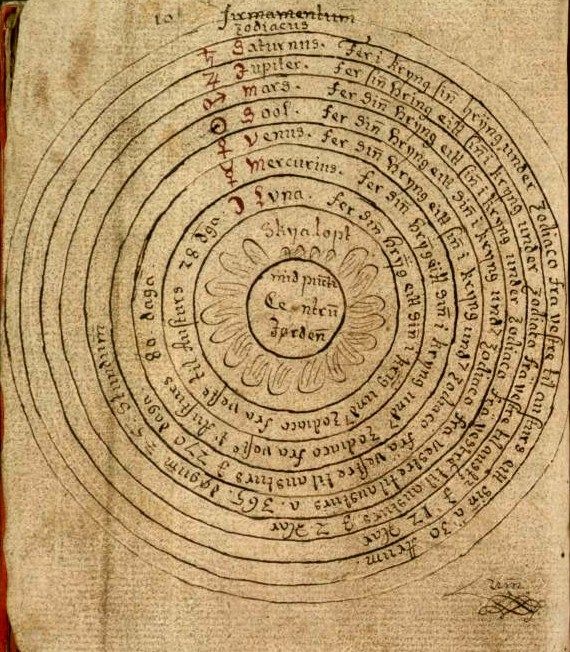 firmamentum
zodiacus
♄ Saturnus. fer i kryng sin hring under Zodiaco fra vestre til austurs eitt sin a 30 Arum.
♃ Jupiter. fer sin hring eitt sin i kryng under Zodiaco fra vestre til austurs 12 Aar
♂ Mars. fer sin hryng eitt sin i kryng under Zodiaco fra vestre til austurs 2 Aar
☉ Sool. fer sin hryng eitt sin i kryng und Zodiaco fra vestre til austurs a 365 dogum Stundum
♀ Venus. fer sin hryng eitt sin i kryng und Zodiaco fra vestre til austurs 270 daga
☿ Mercurius. fer sin hryg eitt sin i kryng und Zodiaco fra vestre til Austurs 80 daga
☽ Luna. fer sin hryg eitt sin i kryg und Zodiaco fra vestre til Austurs 28 dga.
Skyalopt
mid puctr
Centrū
Jørden